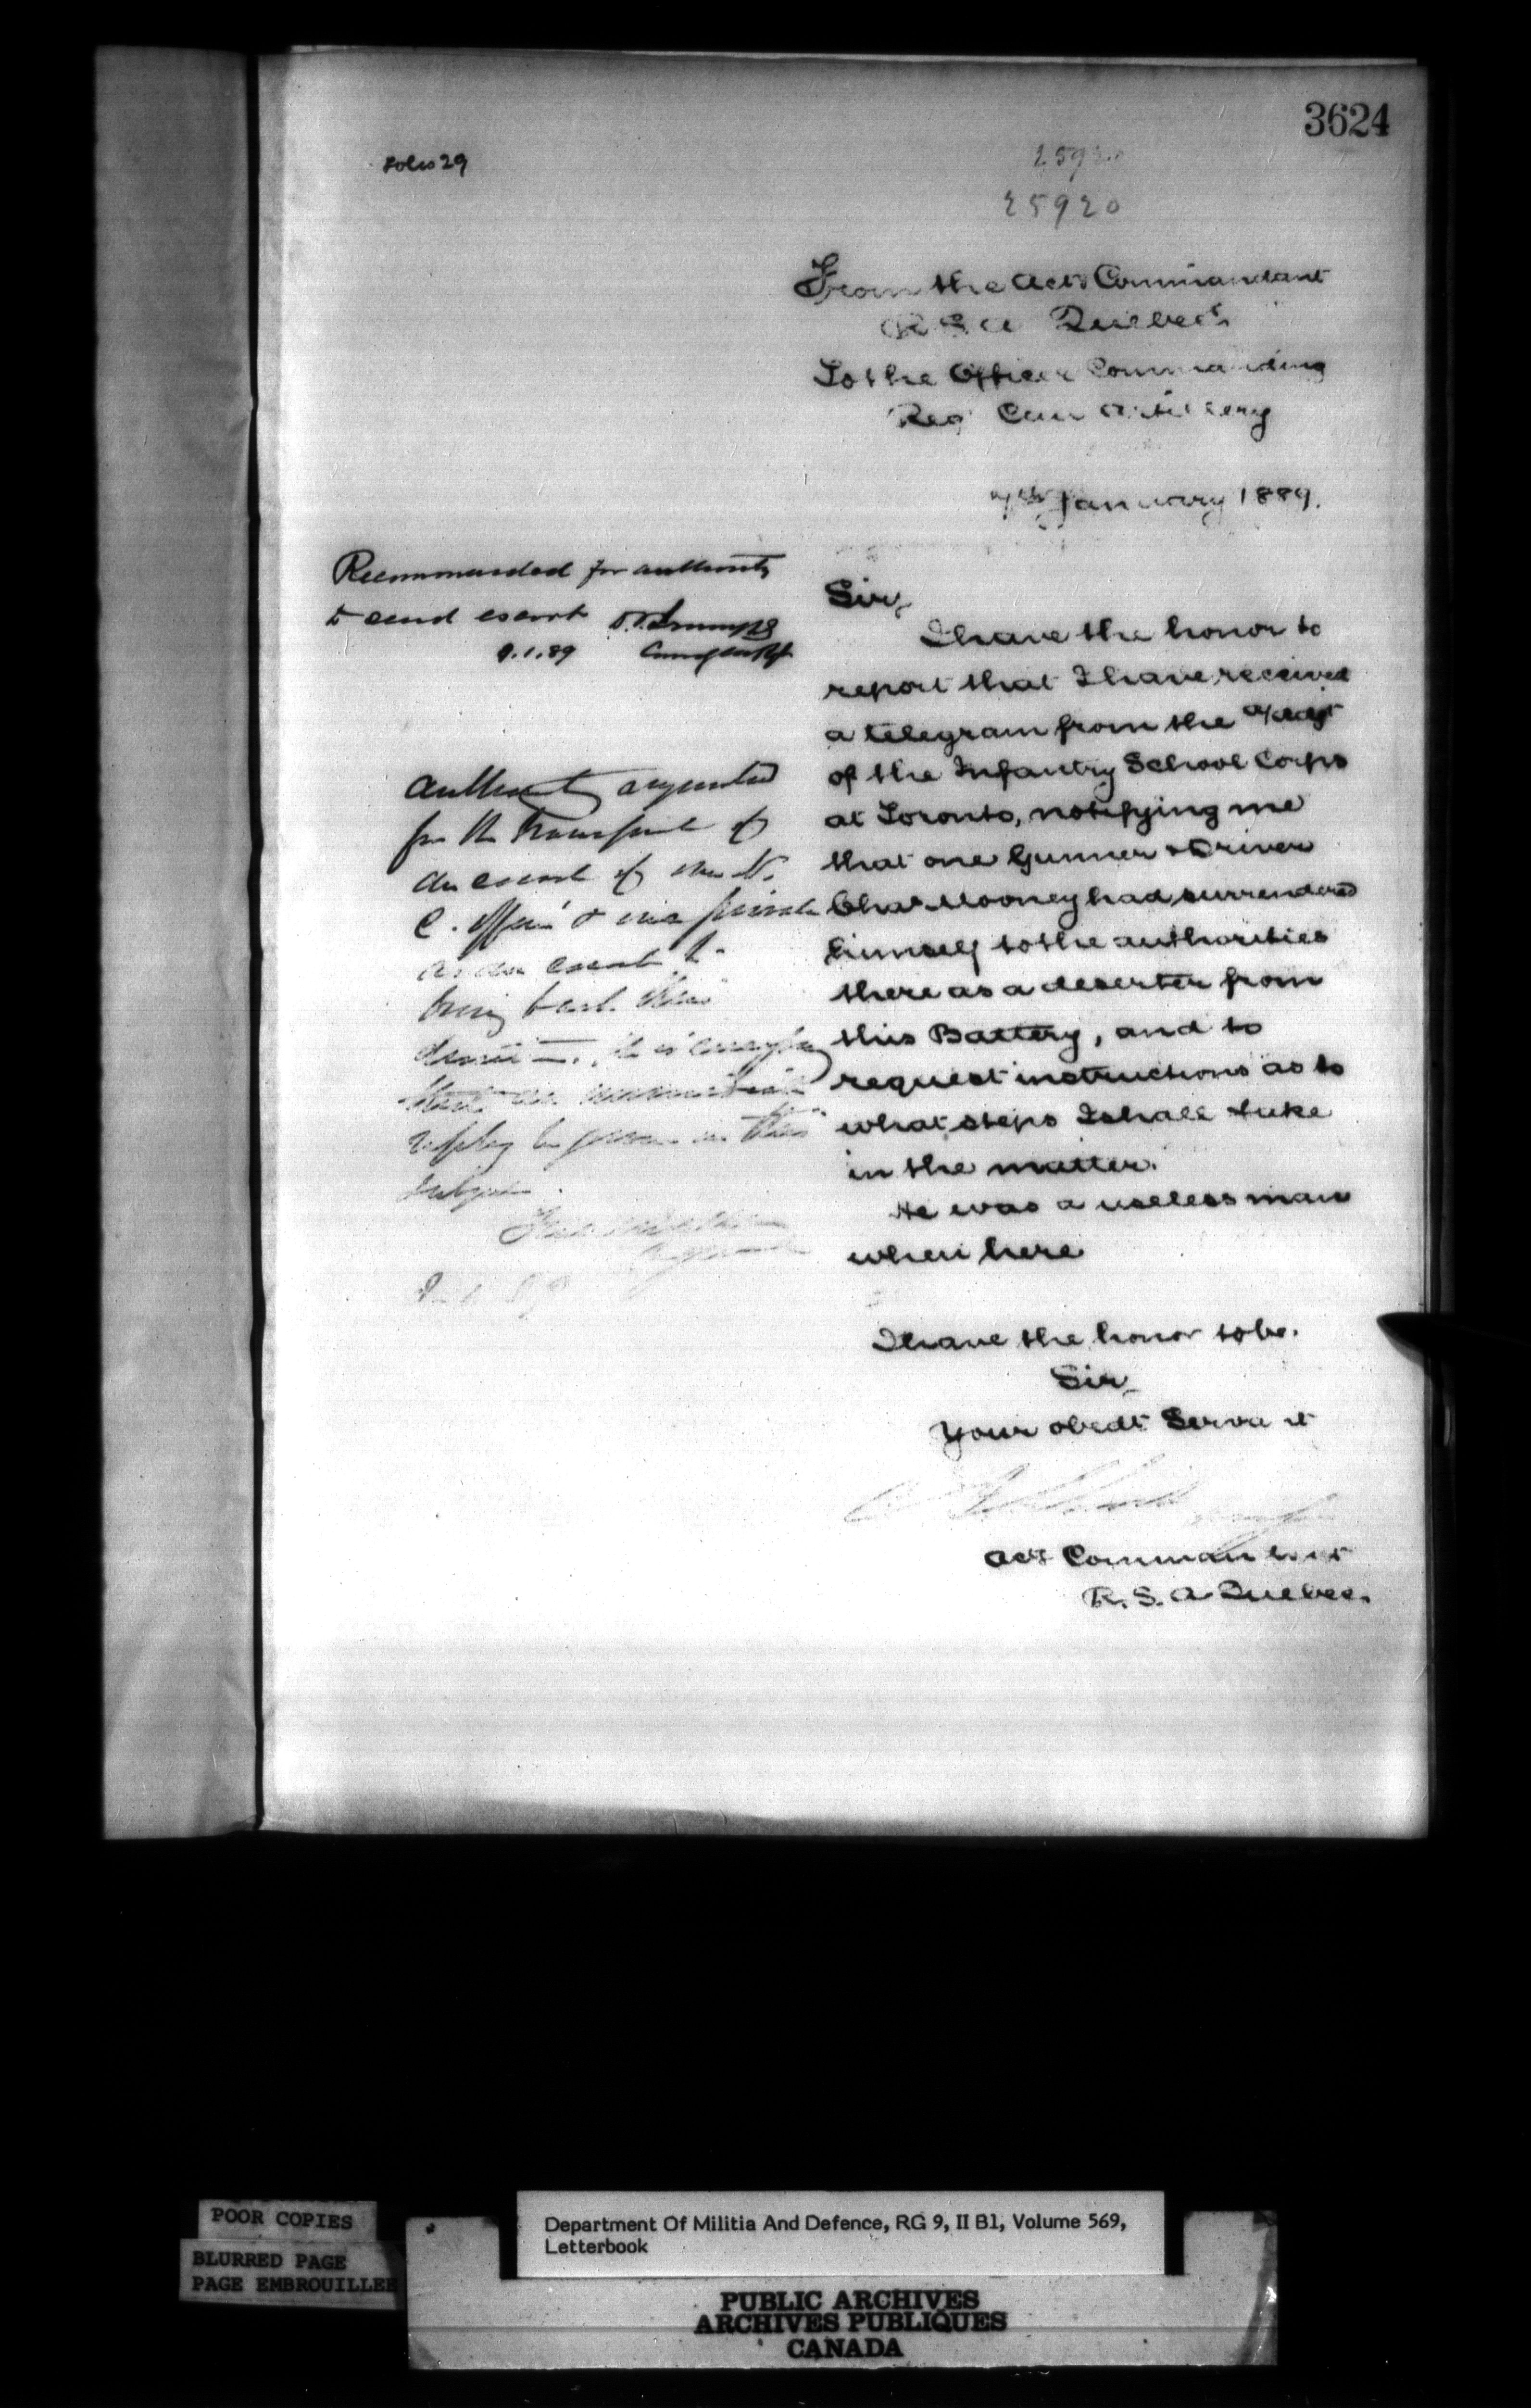 3624
Folio 29
25920
25920
From the Actg Commandant
R S A Quebec
To the Officer Commanding
Reg Can Artillery
7th January 1889.
Recommended for authority
to send escort
9.1.89
Authority requested
for the transport of
an escort of one N.
C. Officer & one private
as an escort to
bring back this
it is
that an
reply be given on this
subject.
Sir,
I have the honor to
report that I have received
a telegram from the
of the Infantry School Corps
at Toronto, notifying me
that one Gunner & Driver
Chas Mooney had surrendered
himself to the authorities
there as a deserter from
this Battery, and to
request instructions as to
what steps I shall take
in the matter.
He was a useless man
when here
I have the honor to be.
Sir,
Your obedt Servant
Actg Commandant
R. S. A Quebec.
POOR COPIES
BLURRED PAGE
PAGE EMBROUILLEE
Department Of Militia And Defence, RG 9, II B1, Volume 569,
Letterbook
PUBLIC ARCHIVES
ARCHIVES PUBLIQUES
CANADA